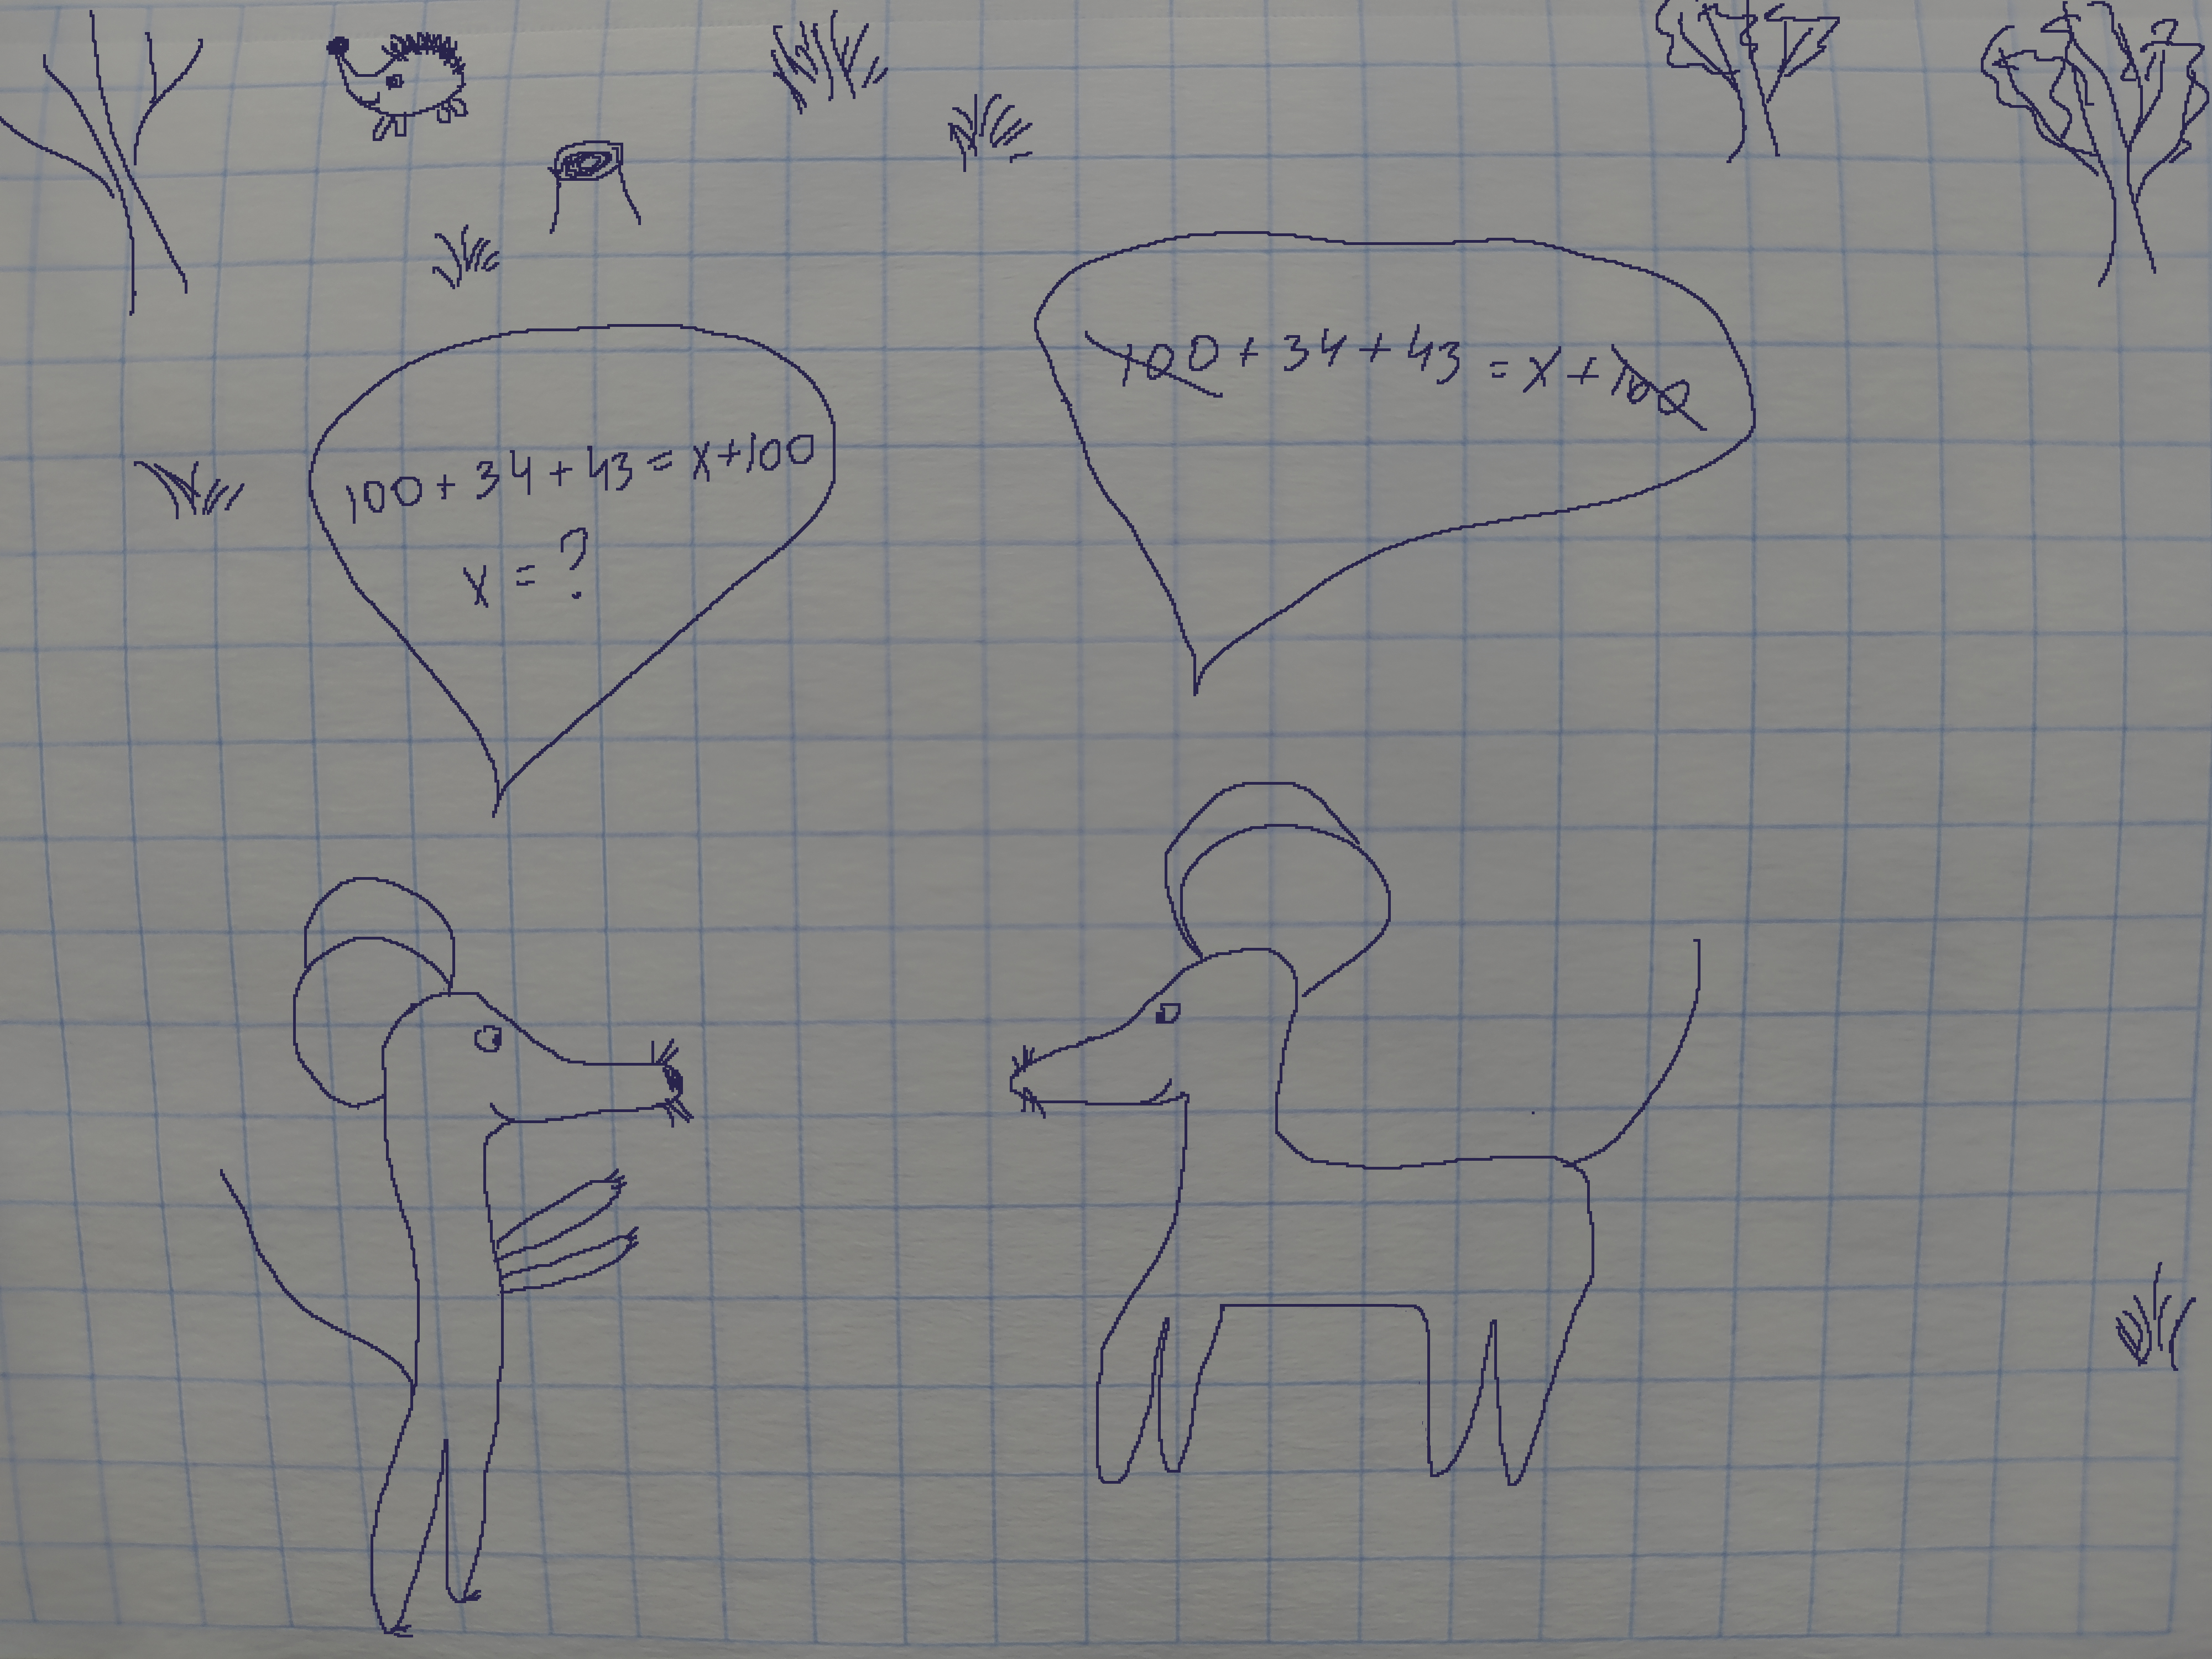 100 + 34 + 43 = x + 100
x = ?
100 + 34 + 43 = x + 100